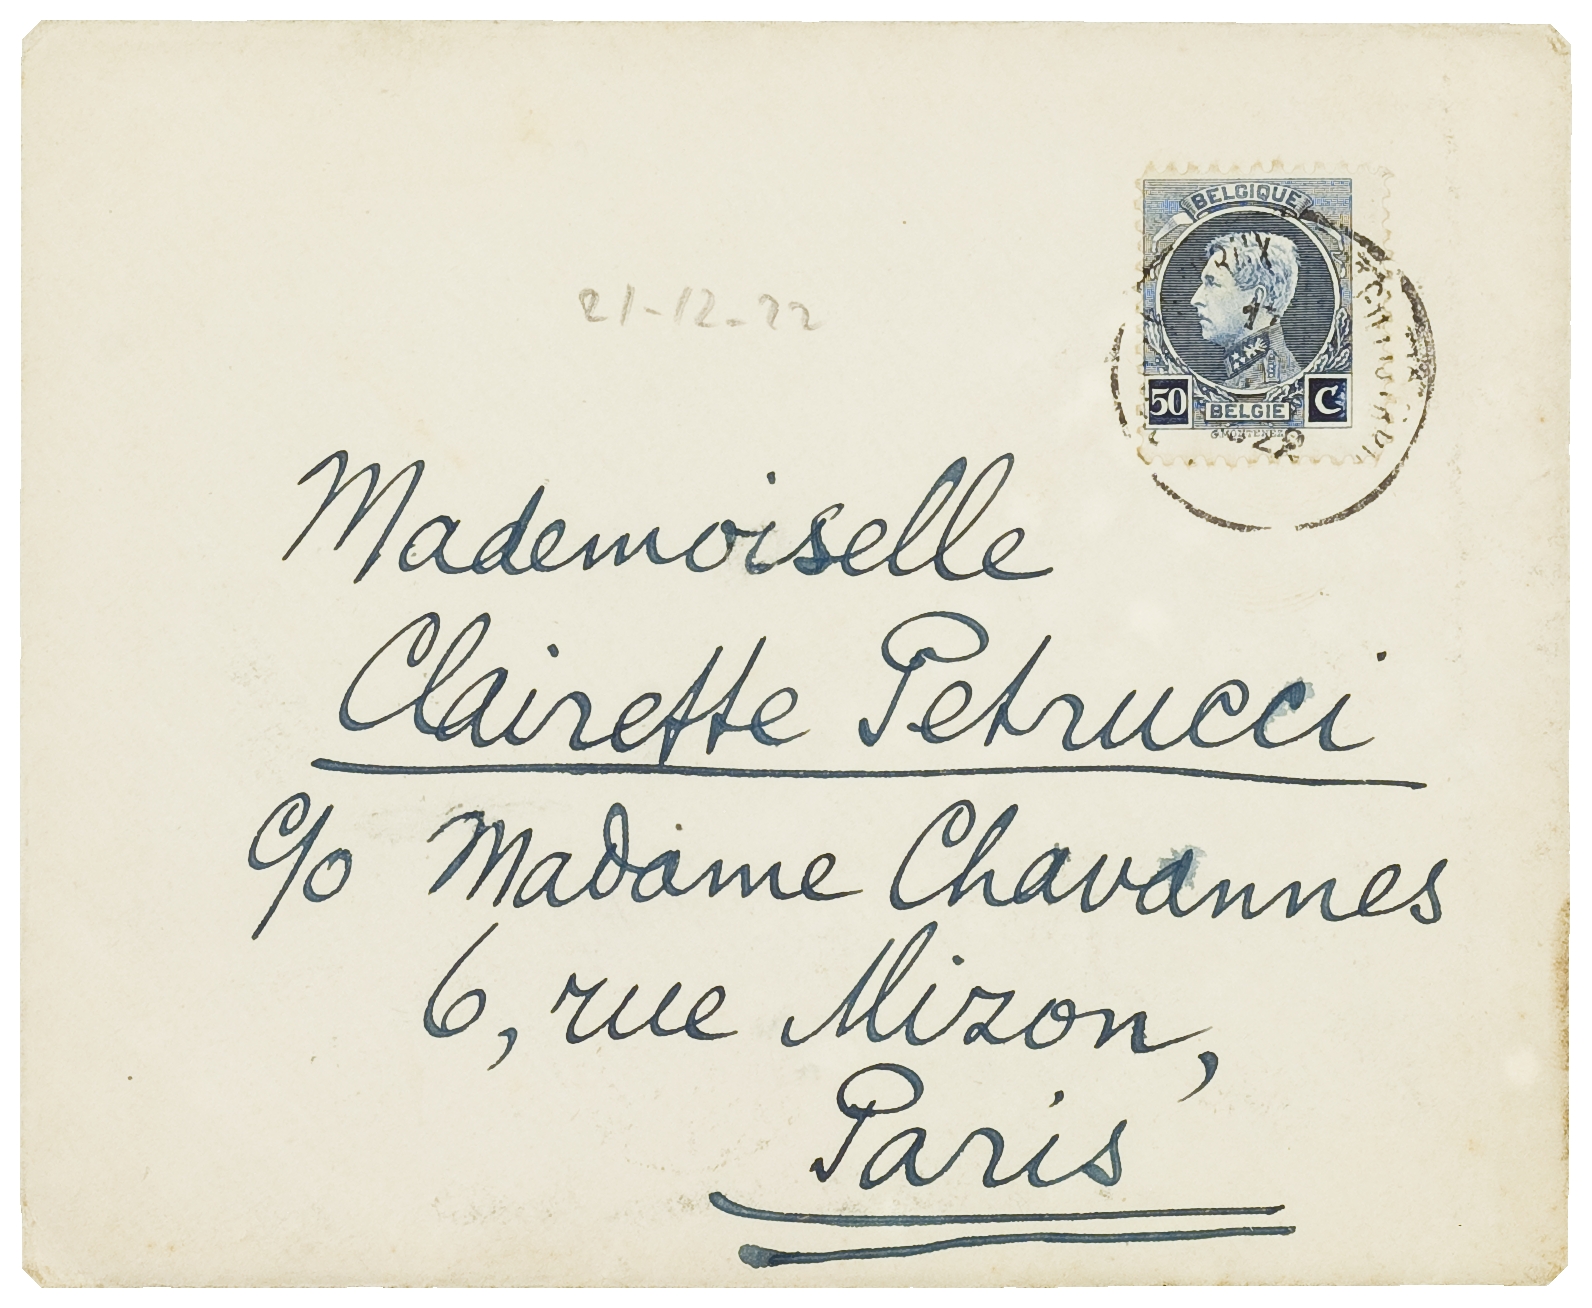 BELGIQUE
50 C
BELGIE
21-12-22
Mademoiselle
Clairette Petrucci
c/o Madame Chavannes
6, rue Mizon,
Paris